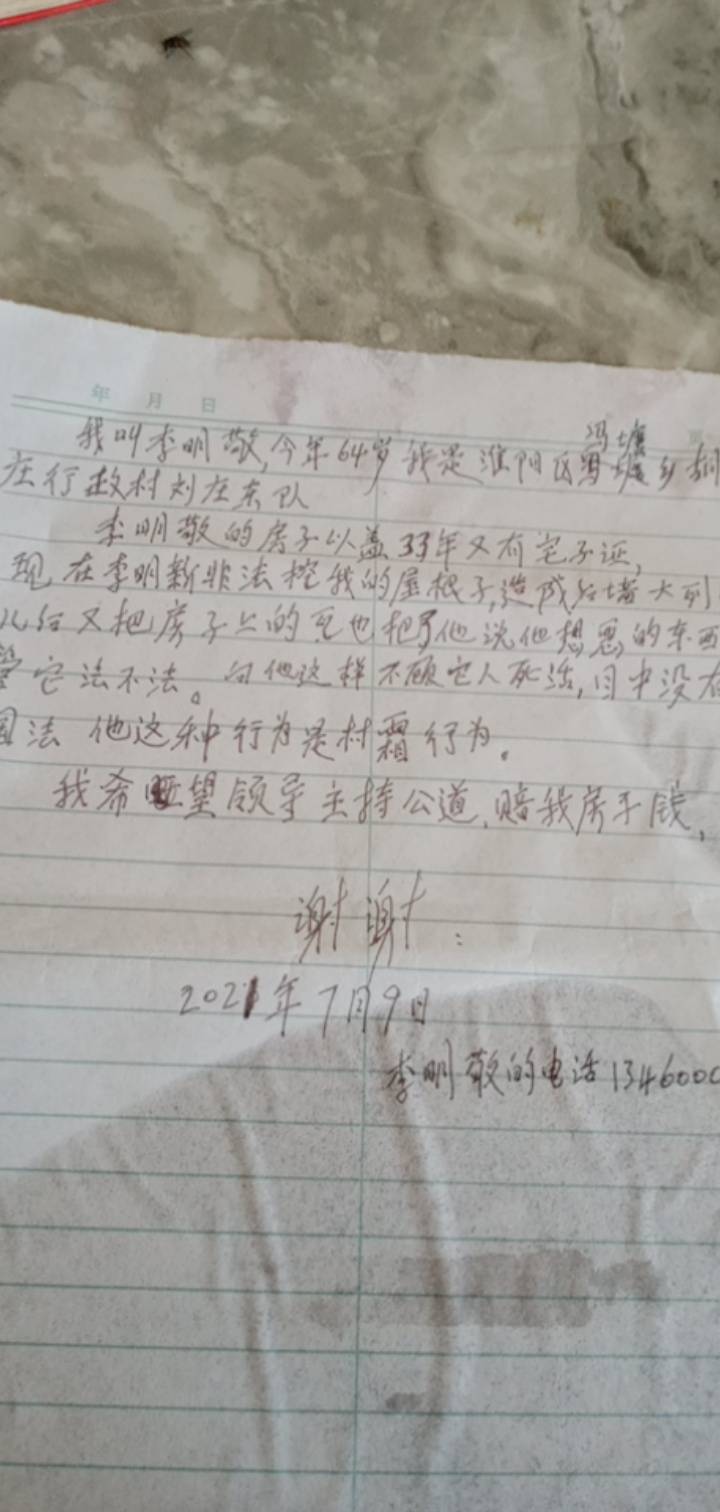 年 月 日
冯塘
我叫李明敬,今年64岁我是淮阳区冯塘乡
庄行政村刘庄东队
李明敬的房子以盖33年又有宅子证,
现在李明新非法挖我的屋根子,造成后墙大裂
后又把房子上的瓦也把了他说他想要的东西
管它法不法。向他这样不顾它人死活,目中没有
国法 他这种行为是村霜行为。
我希望领导主持公道,赔我房子钱,
谢谢:
2021年7月9日
李明敬的电话134600